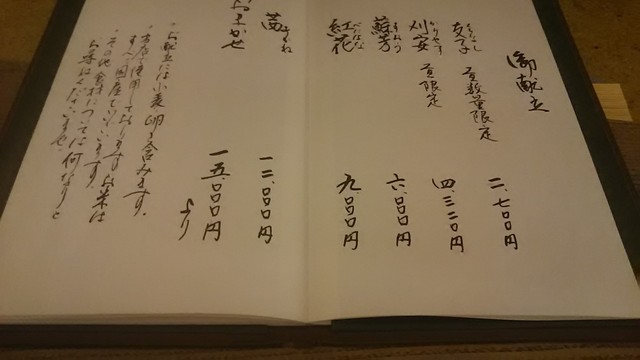 御献立
支子 昼数量限定 二、七〇〇円
くちなし
刈安 昼限定 四、三二〇円
かりやす
蘇芳 六、〇〇〇円
すおう
紅花 九、〇〇〇円
べにばな
茜 一二、〇〇〇円
あかね
おまかせ 一五、〇〇〇円より
・お献立には小麦、卵を含みます。
・当店で使用しております お米は
すべて国産でございます。
・その他食材については何なりと
お尋ねくださいませ。